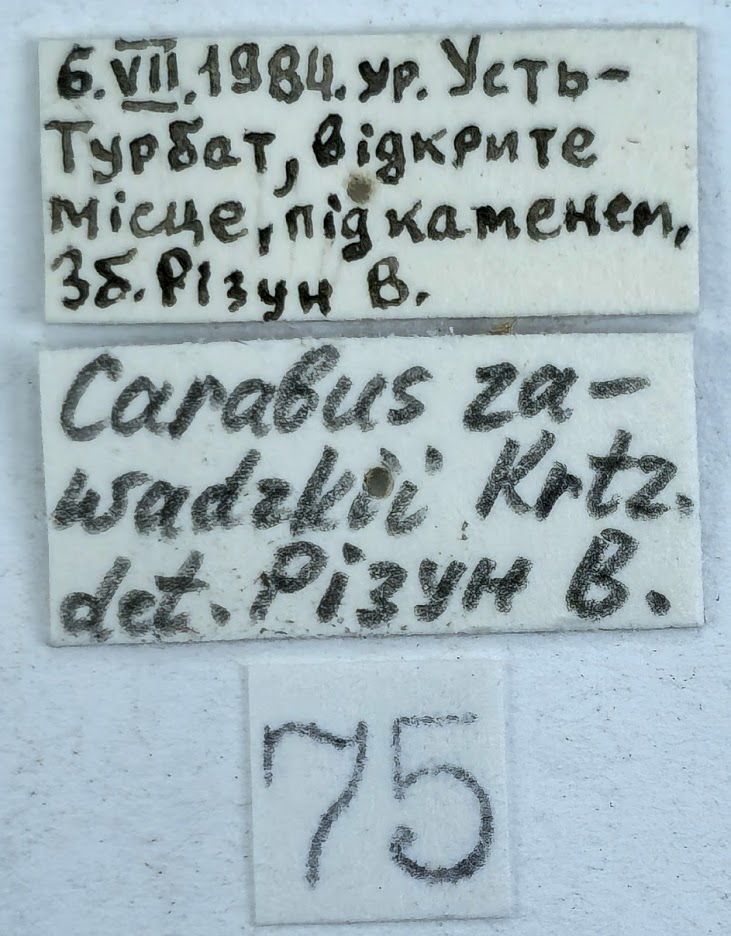 6.VII.1984. ур. Усть-
Турбат, відкрите
місце, під каменем,
Зб. Різун В.
Carabus za-
wadzkii Krtz.
det. Різун В.
75